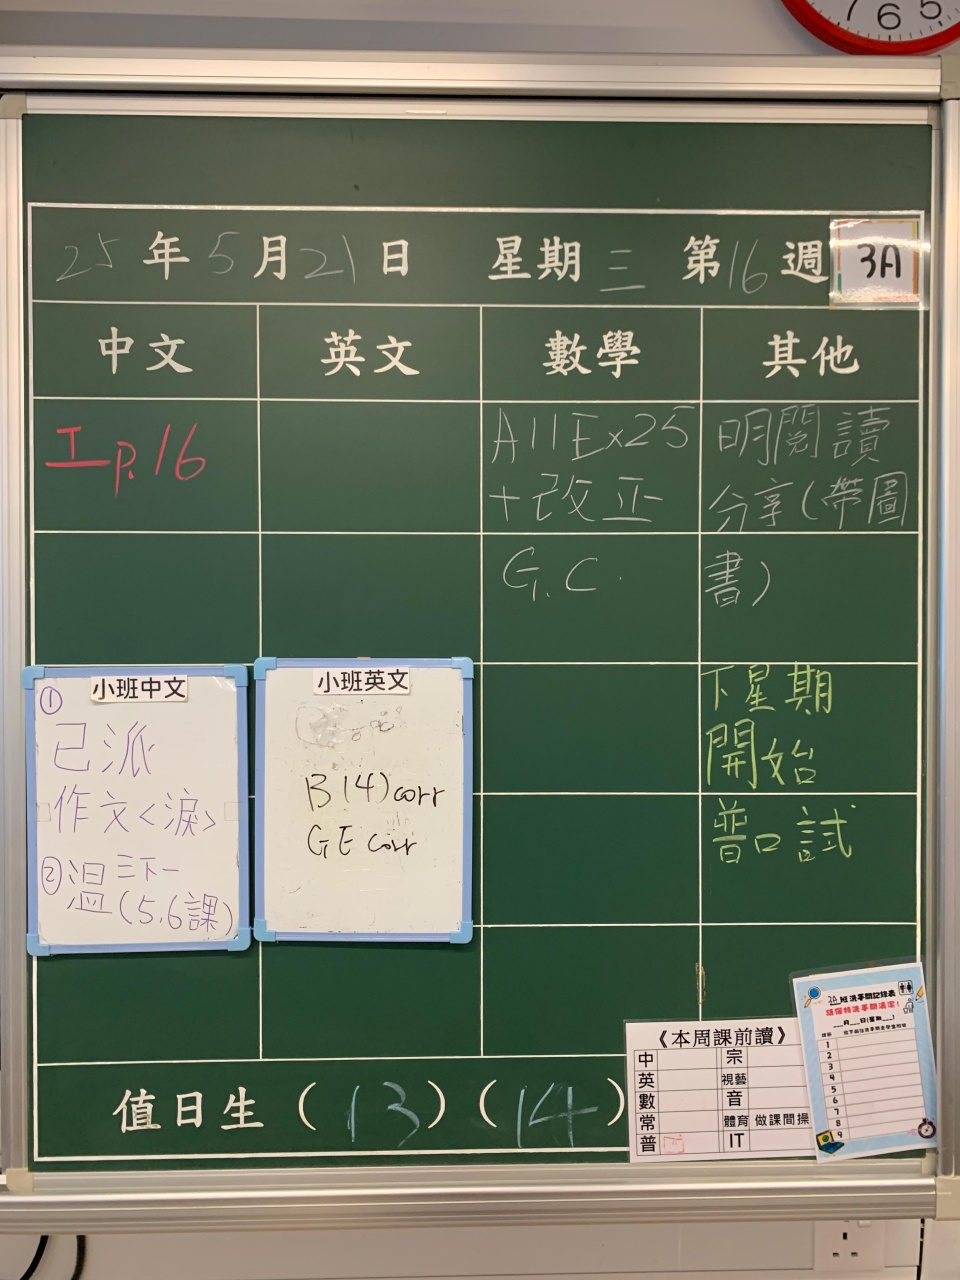 7 6 5
25年5月21日 星期三 第16週 3A
中文 英文 數學 其他
工 p.16
AllEx25
+改正
G.C.
明閱讀
分享(帶圖
書)
下星期
開始
普口試
小班中文
① 已派
作文<淚>
② 溫三下一
(5.6課)
小班英文
B(4)corr
GE corr
值日生(13)(14)
《本周課前讀》
中 宗
英 視藝
數 音
常 體育 做課間操
普 IT
3A班洗手間記錄表
請保持洗手間清潔!
__月__日(星期__)
1
2
3
4
5
6
7
8
9